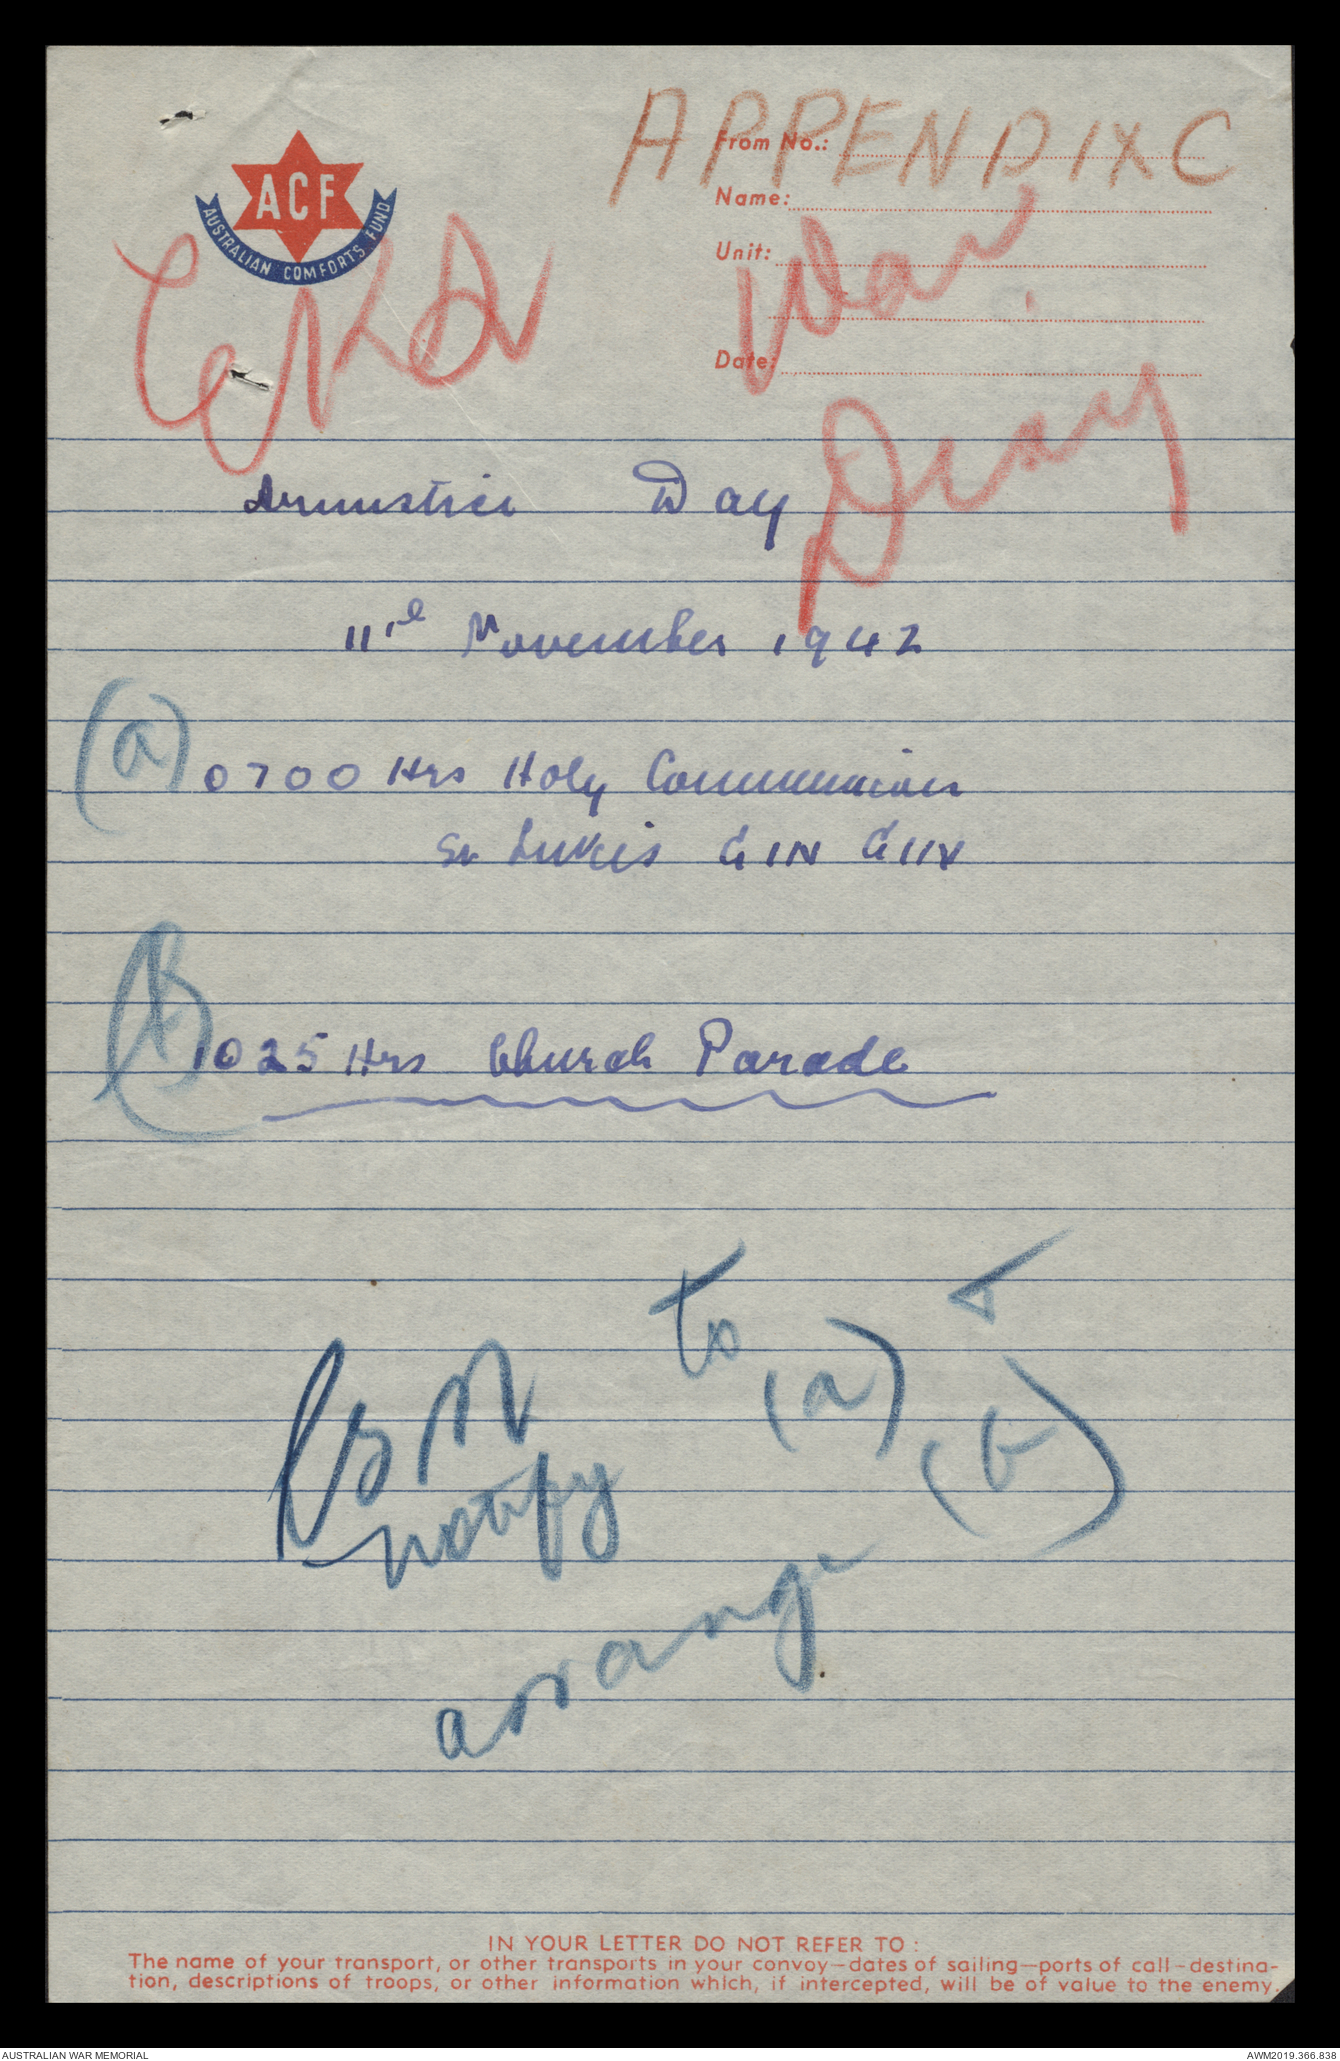 APPENDIX C
ACF
AUSTRALIAN COMFORTS FUND
From No.:
Name:
Unit:
Date:
War
Diary
Armistice Day
11th November 1942
(a) 0700 Hrs Holy Communion
St Lukes GIN GIN
(b) 1025 Hrs Church Parade
to
(a)
(b)
notify
arrange
IN YOUR LETTER DO NOT REFER TO :
The name of your transport, or other transports in your convoy—dates of sailing—ports of call—destina-
tion, descriptions of troops, or other information which, if intercepted, will be of value to the enemy.
AUSTRALIAN WAR MEMORIAL
AWM2019.366.838